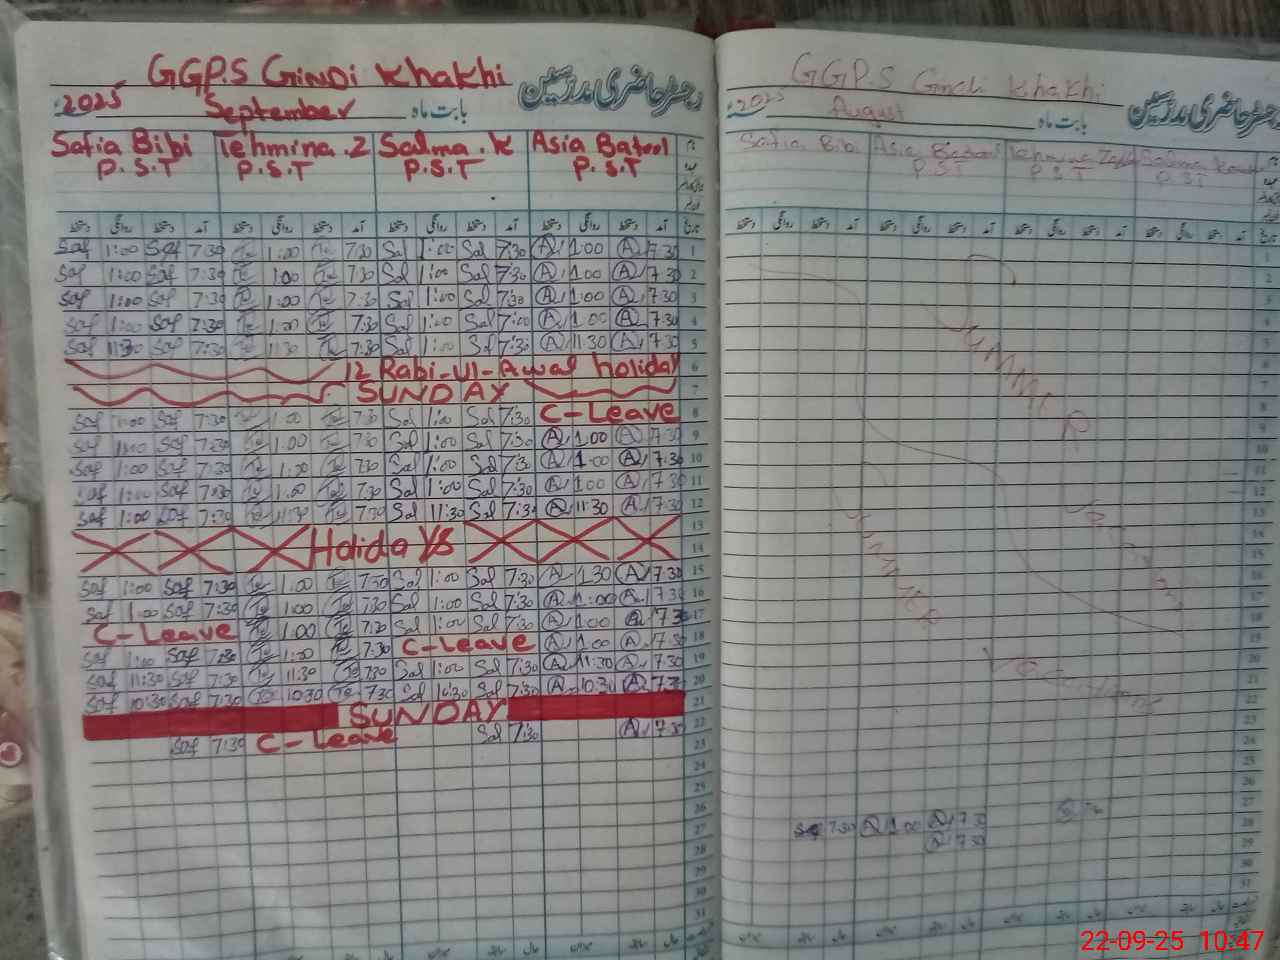 GGP.S GiNDi Khakhi
رجسٹر حاضری مدرسین
2025 September بابت ماہ
Safia Bibi Tehmina.Z Salma.K Asia Batool
P.S.T P.S.T P.S.T P.S.T
Saf 1:00 Saf 7:30 Te 1:00 Te 7:30 Sal 1:00 Sal 7:30 A 1:00 A 7:30 1
Saf 1:00 Saf 7:30 Te 1:00 Te 7:30 Sal 1:00 Sal 7:30 A 1:00 A 7:30 2
Saf 1:00 Saf 7:30 Te 1:00 Te 7:30 Sal 1:00 Sal 7:30 A 1:00 A 7:30 3
Saf 1:00 Saf 7:30 Te 1:00 Te 7:30 Sal 1:00 Sal 7:00 A 1:00 A 7:30 4
Saf 11:30 Saf 7:30 Te 11:30 Te 7:30 Sal 1:00 Sal 7:30 A 11:30 A 7:30 5
12 Rabi-ul-Awal holiday 6
SUNDAY 7
Saf 1:00 Saf 7:30 Te 1:00 Te 7:30 Sal 1:00 Sal 7:30 C-Leave 8
Saf 1:00 Saf 7:30 Te 1:00 Te 7:30 Sal 1:00 Sal 7:30 A 1:00 A 7:30 9
Saf 1:00 Saf 7:30 Te 1:00 Te 7:30 Sal 1:00 Sal 7:30 A 1:00 A 7:30 10
Saf 1:00 Saf 7:30 Te 1:00 Te 7:30 Sal 1:00 Sal 7:30 A 1:00 A 7:30 11
Saf 1:00 Saf 7:30 Te 11:30 Te 7:30 Sal 11:30 Sal 7:30 A 11:30 A 7:30 12
13
Holidays
14
Saf 1:00 Saf 7:30 Te 1:00 Te 7:30 Sal 1:00 Sal 7:30 A 1:30 A 7:30 15
Saf 1:00 Saf 7:30 Te 1:00 Te 7:30 Sal 1:00 Sal 7:30 A 1:00 A 7:30 16
C-Leave Te 1:00 Te 7:30 Sal 1:00 Sal 7:30 A 1:00 A 7:30 17
Saf 1:00 Saf 7:30 Te 1:00 Te 7:30 C-Leave A 1:00 A 7:30 18
Saf 11:30 Saf 7:30 Te 11:30 Te 7:30 Sal 1:00 Sal 7:30 A 11:30 A 7:30 19
Saf 10:30 Saf 7:30 Te 10:30 Te 7:30 Sal 10:30 Sal 7:30 A 10:30 A 7:30 20
SUNDAY 21
Saf 7:30 C-Leave Sal 7:30 A 7:30 22
23
24
25
26
27
28
29
30
31
GGP.S Gindi Khakhi
رجسٹر حاضری مدرسین
2025 August بابت ماہ
Safia Bibi Asia Batool Tehmina
P.S.T P.S.T P.S.T
SUMMER
SUMMER
Vacations
7:30 A 1:00 A 7:30
A 7:30
22-09-25 10:47